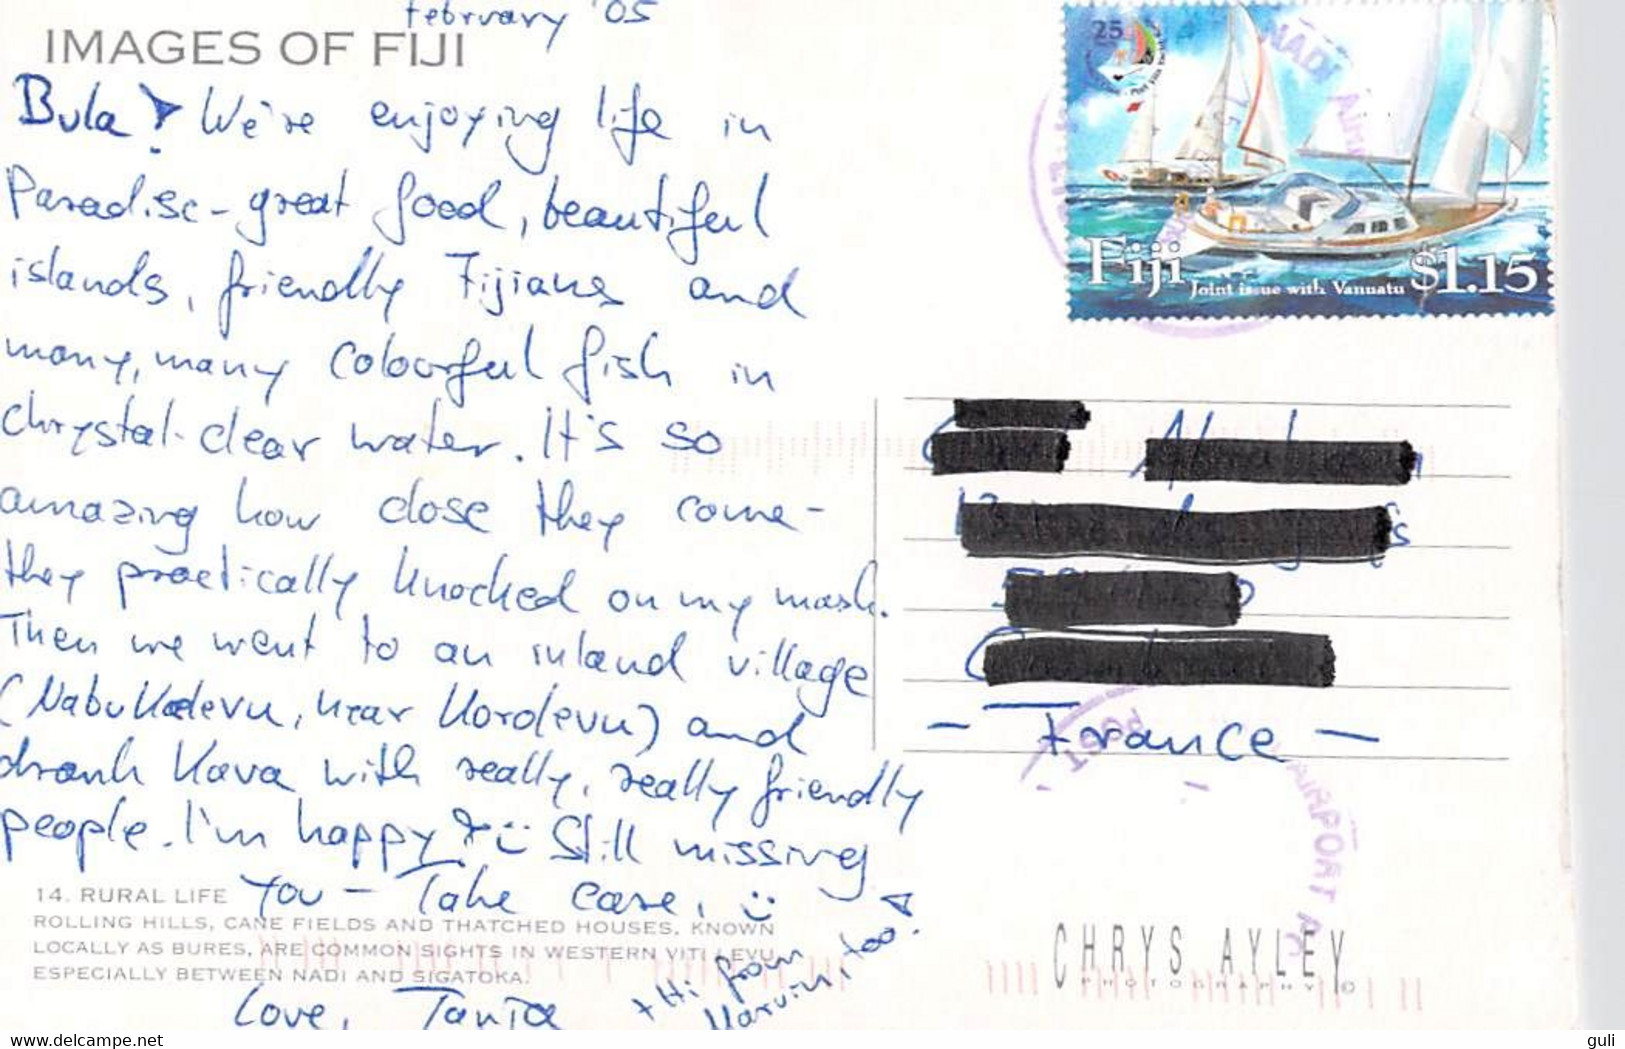 February '05
IMAGES OF FIJI
Bula! We're enjoying life in
Paradise - great food, beautiful
islands, friendly Fijians and
many, many colourful fish in
chrystal-clear water. It's so
amazing how close they come -
they practically knocked on my mask.
Then we went to an inland village
(Nabukelevu, near Korolevu) and
drank Kava with really, really friendly
people. I'm happy! :) Still missing
you - Take care, :)
Love, Tanja
+ Hi from
too!
14. RURAL LIFE
ROLLING HILLS, CANE FIELDS AND THATCHED HOUSES, KNOWN
LOCALLY AS BURES, ARE COMMON SIGHTS IN WESTERN VITI LEVU
ESPECIALLY BETWEEN NADI AND SIGATOKA.
25
Fiji
Joint issue with Vanuatu
$1.15
NADI AIRPORT
- France -
POST
AIRPORT
CHRYS AYLEY
PHOTOGRAPHY ©
www.delcampe.net
guli